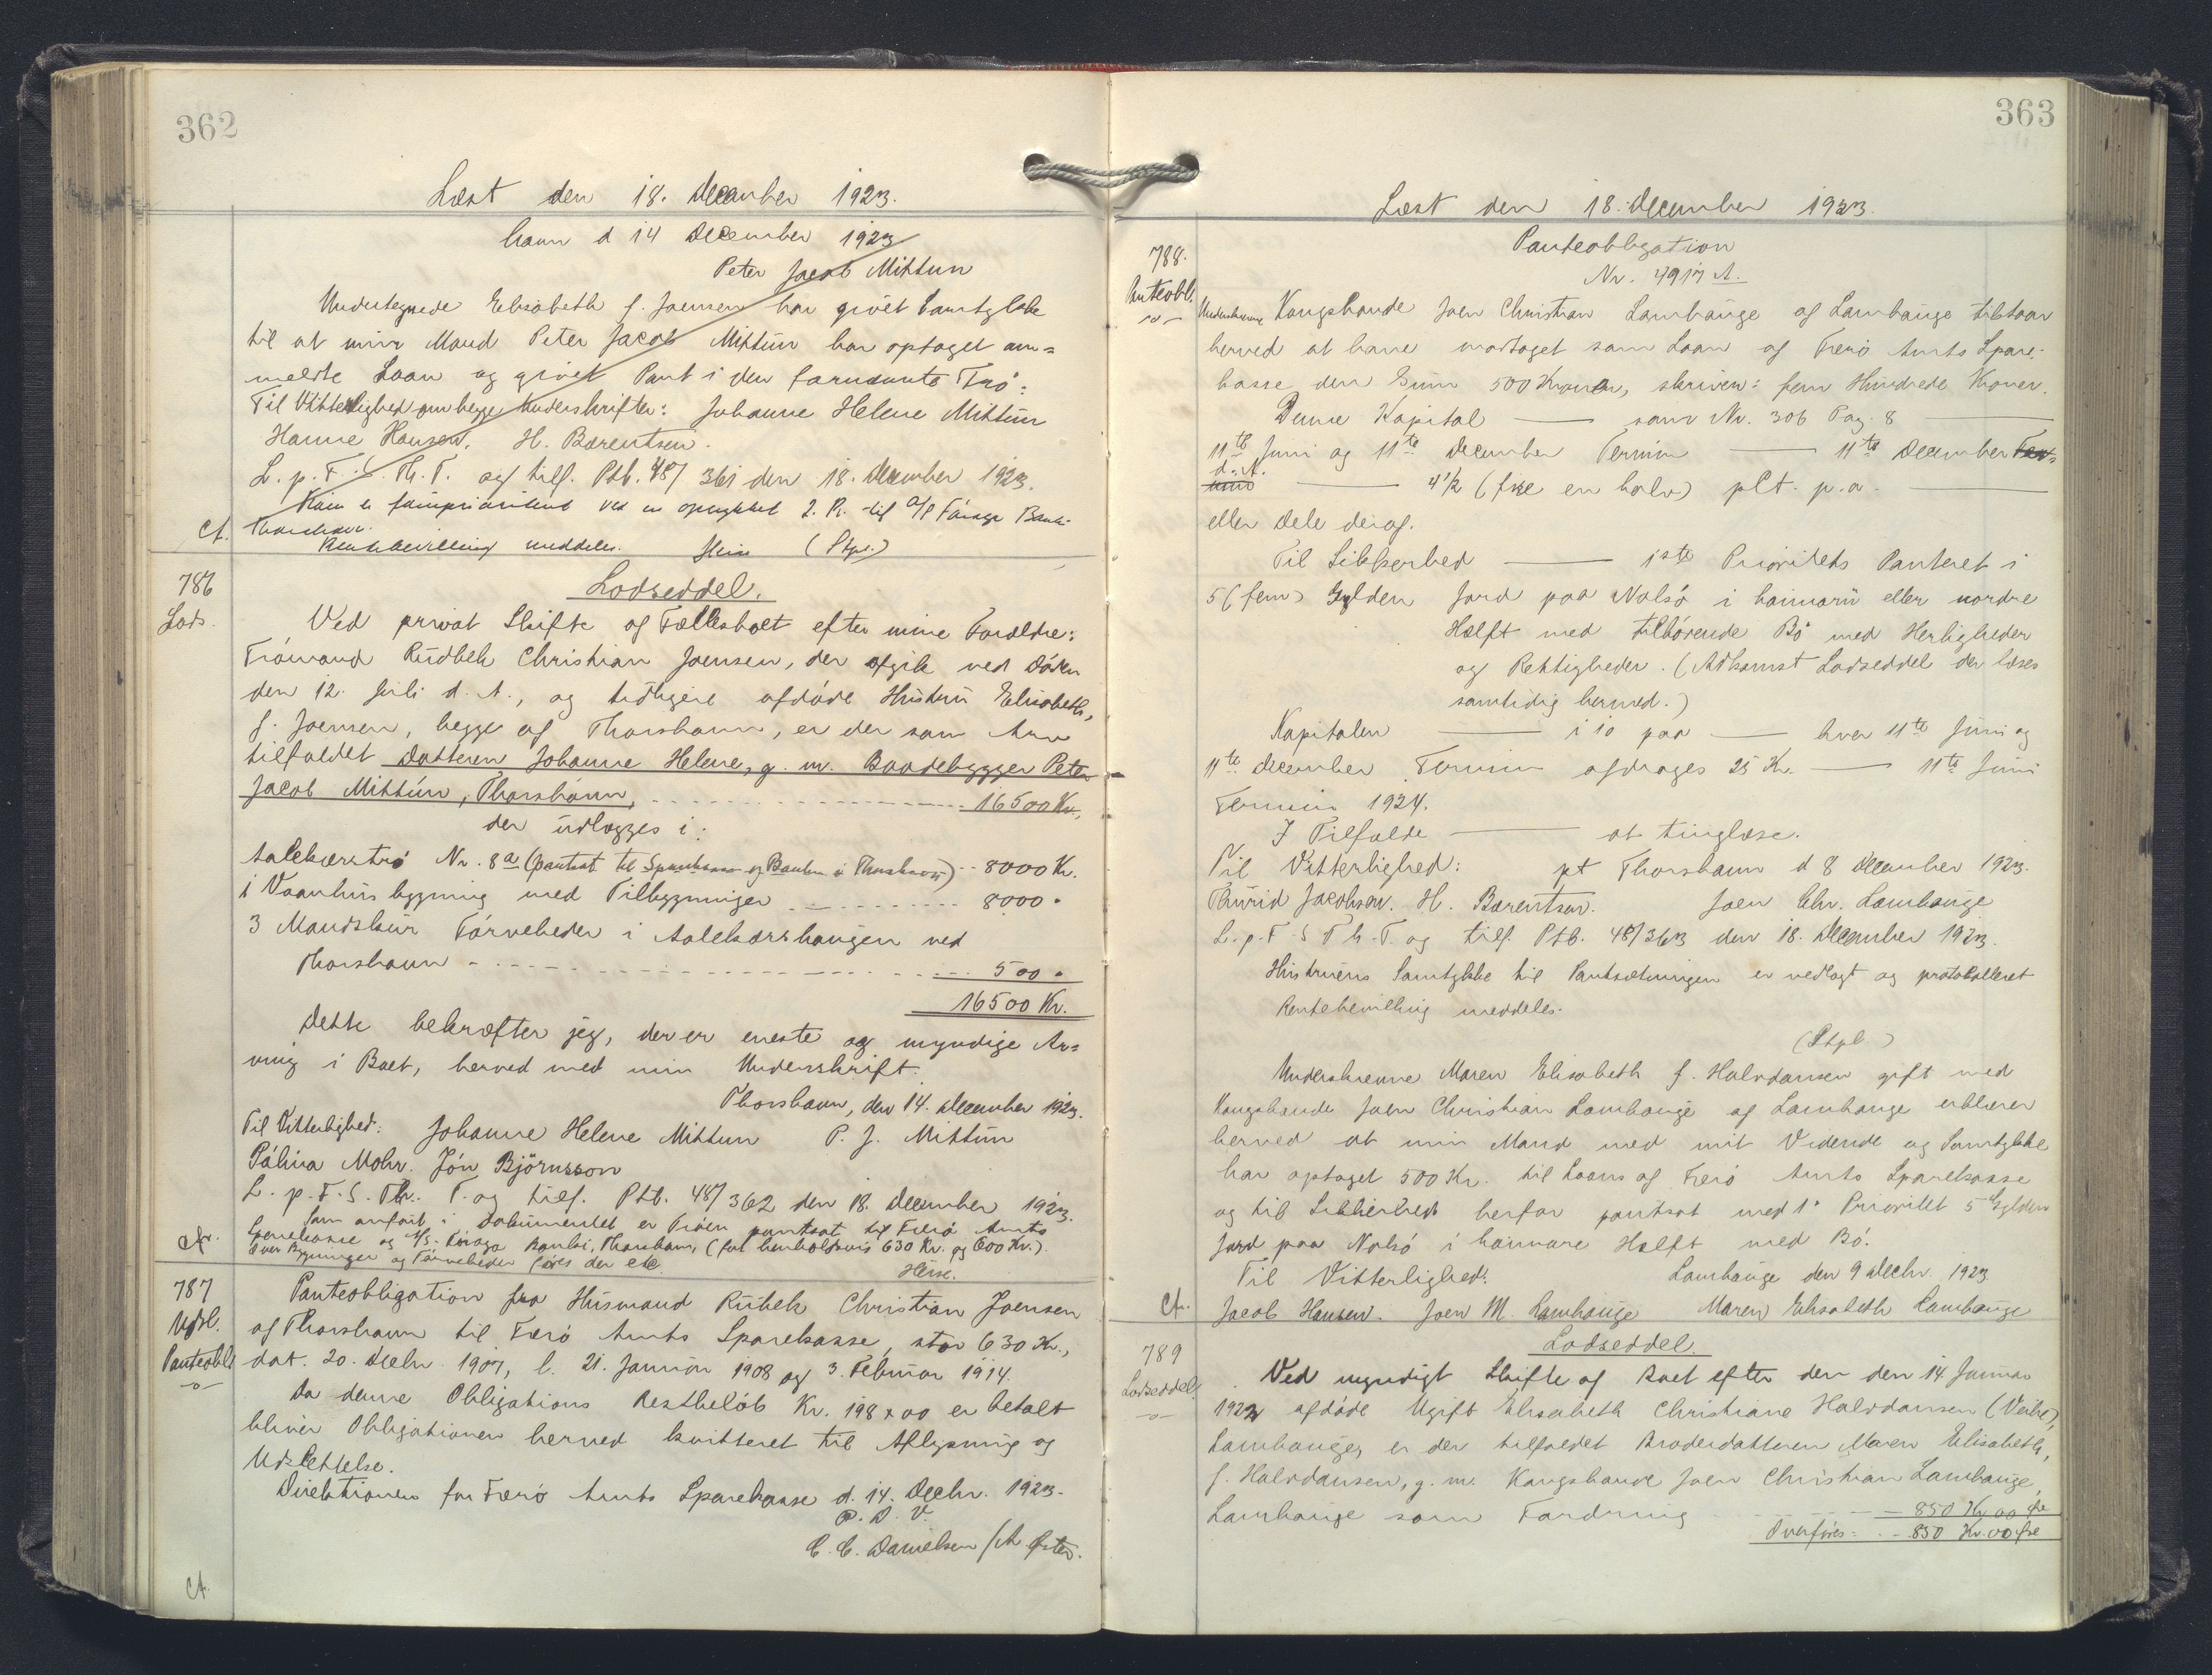 362
Læst den 18. December 1923.
havn d 14 December 1923
Peter Jacob Mittun
Undertegnede Elisabeth f. Joensen har givet Samtykke
til at min Mand Peter Jacob Mittún har optaget an=
meldte Laan og givet Pant i den fornævnte Trö.
Til Vitterlighed om begge Underskrifter: Johanne Helene Mittún
Hanne Hansen. H. Bærentsen.
L. p. F. S. Th. T. og tilf. Ptb. 48/361 den 18. December 1923.
2. Pr. til A/S Föroya Banki
Thorshavn.
Rentebevilling meddeles. Heise (Stpl.)
Cf.
786
Lods.
Lodseddel.
Ved privat Skifte af Fællesboet efter mine Forældre:
Trömand Rudbek Christian Joensen, der afgik ved Döden
den 12. Juli d. A., og tidligere afdöde Hustru Elisabeth,
f. Joensen, begge af Thorshavn, er der som Arv
tilfaldet Datteren Johanne Helene, g. m. Baadebygger Peter
Jacob Mittún, Thorshavn, 16500 Kr.
der udlægges i:
Aalekærströ Nr. 8a (pantsat til Sparekasse og Banken i Thorshavn) 8000 Kr.
1 Vaanhusbygning med Tilbygninger 8000 "
3 Mandskur Törveheder i Aalekærshaugen ved
Thorshavn 500 "
16500 Kr.
Dette bekræfter jeg, der er eneste og myndige Ar=
ving i Boet, herved med min Underskrift.
Thorshavn, den 14. December 1923.
Til Vitterlighed: Johanne Helene Mittun P. J. Mittún
Pálina Mohr. Jón Björnsson
L. p. F. S. Th. T. og tilf. Ptb. 48/362 den 18. December 1923.
Som anfört i Dokumentet er Tröen pantsat til Færö Amts
Sparekasse og A/S. Föroya Banki, Thorshavn, (for henholdsvis 630 Kr. og 600 Kr.).
Over Bygninger og Törveheder föres der ete
Heise.
Cfr.
787
Udsl.
Panteobl.
Panteobligation fra Húsmand Rúbek Christian Joensen
af Thorshavn til Færö Amts Sparekasse, stor 630 Kr.,
dat. 20. Decbr. 1907, l. 21. Januar 1908 og 3. Februar 1914.
Da denne Obligations Restbelöb Kr. 198 x 00 er betalt
bliver Obligationen herved kvitteret til Aflysning og
Udslettelse.
Direktionen for Færö Amts Sparekasse d. 14. Decbr. 1923.
P. D. V.
C. C. Danielsen / A Öster.
Cf.
363
Læst den 18. December 1923.
788.
Panteobl.
Panteobligation
Nr. 4917 A.
Underskrevne Kongsbonde Joen Christian Lambauge af Lambauge tilstaar
herved at have modtaget som Laan af Færö Amts Spare-
kasse den Sum 500 Kroner, skriver: fem Hundrede Kroner.
Denne Kapital — som Nr. 306 Pag. 8 —
11te Juni og 11te December Termin — 11te December
d. A. — 4½ (fire en halv) pCt. p. a. —
eller Dele deraf.
Til Sikkerhed — 1ste Prioritets Panteret i
5 (fem) Gylden Jord paa Nolsö i haimaru eller nordre
Hælft med tilhörende Bö med Herligheder
og Rettigheder. (Adkomst Lodseddel der læses
samtidig hermed.)
Kapitalen — i 10 paa — hver 11te Juni og
11te December Termin afdrages 25 Kr. — 11te Juni
Termin 1924.
I Tilfælde — at tinglæse.
Til Vitterlighed: pt Thorshavn d 8 December 1923.
Thurid Jacobsen. H. Bærentsen. Joen Chr. Lambauge
L. p. F. S Th. T. og tilf. Ptb. 48/363 den 18. December 1923.
Hustruens Samtykke til Pantsætningen er vedlagt og protokolleret
Rentebevilling meddeles.
(Stpl)
Underskrevne Maren Elisabeth f. Halvdansen gift med
Kongsbonde Joen Christian Lambauge af Lambauge erklærer
herved at min Mand med mit Vidende og Samtykke
har optaget 500 Kr. til Laans af Færö Amts Sparekasse
og til Sikkerhed herfor pantsat med 1. Prioritet 5 Gylden
Jord paa Nolsö i haimare Hælft med Bö.
Til Vitterlighed: Lambauge den 9 Decbr. 1923
Jacob Hansen. Joen M. Lambauge Maren Elisabeth Lambauge
Cf.
789
Lodseddel.
Lodseddel.
Ved myndigt Skifte af Boet efter den den 14. Januar
1923 afdöde Ugift Elisabeth Christiane Halvdansen (Veihe),
Lambauge, er der tilfaldet Broderdatteren Maren Elisabeth,
f. Halvdansen, g. m. Kongsbonde Joen Christian Lambauge,
Lambauge som Fordring 850 Kr. 00 Øre
Overföres: 850 Kr. 00 Øre